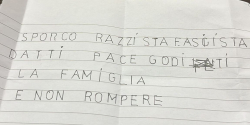 SPORCO RAZZISTA FASCISTA
DATTI PACE GODITI
LA FAMIGLIA
E NON ROMPERE